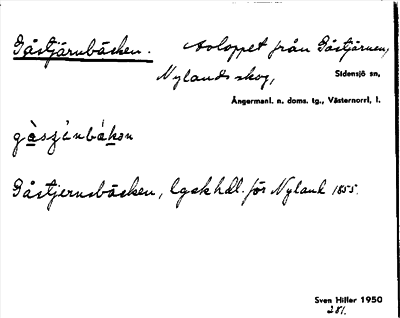 Gåstjärnbäcken. Avloppet från Gåstjärnen,
Nylands skog, Sidensjö sn,
Ångermanl. n. doms. tg., Västernorrl. l.
Gåstjernsbäcken, lgskhdl. för Nyland 1855.
Sven Hiller 1950
281.